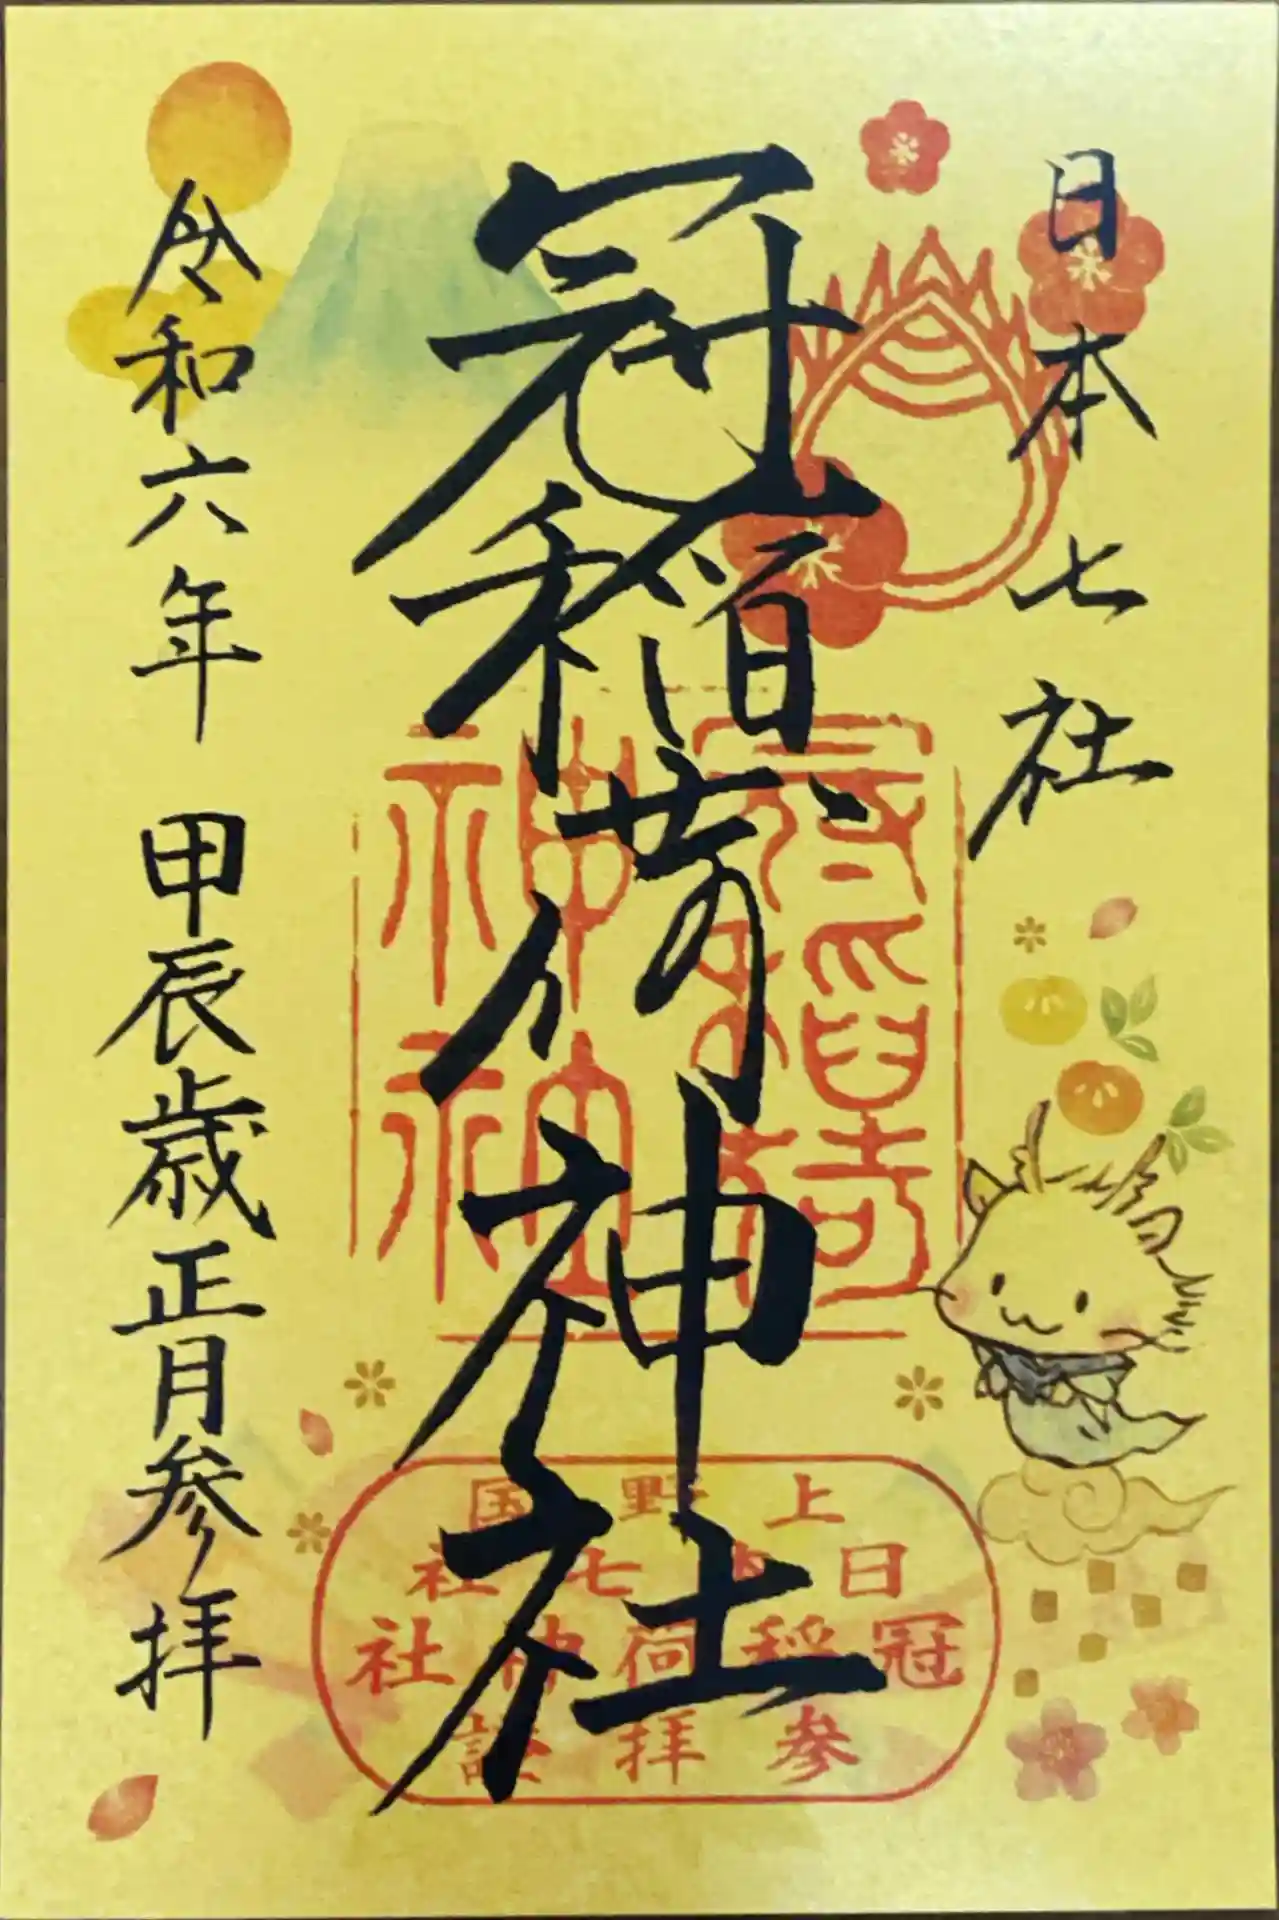 日本七社
冠稲荷神社
令和六年 甲辰歳正月参拝
冠稲荷神社
上野国
日本七社
冠稲荷神社
参拝証